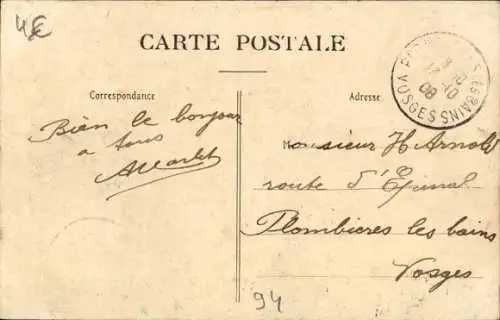 4€
CARTE POSTALE
Correspondance
Adresse
Bien le bonjour
a tous
Monsieur H Arnold
route d'Epinal
Plombieres les bains
Vosges
94
LES BAINS
VOSGES
10
08